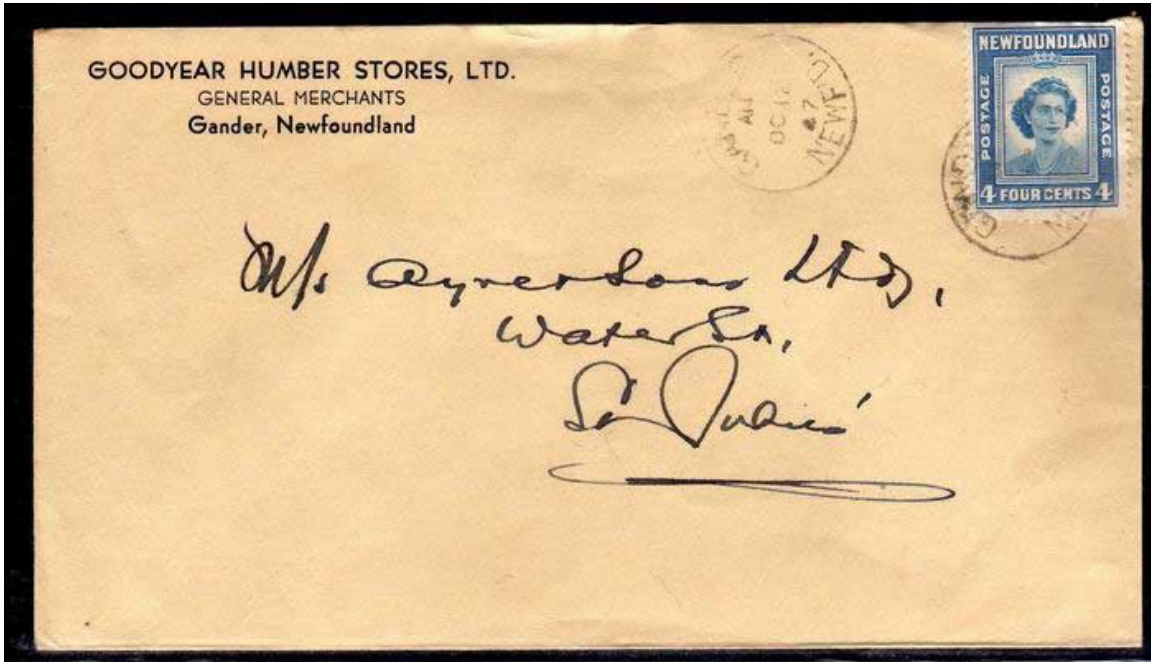 GOODYEAR HUMBER STORES, LTD.
GENERAL MERCHANTS
Gander, Newfoundland
AM
OC 12
47
NEWFD.
NEWFOUNDLAND
POSTAGE
POSTAGE
4 FOUR CENTS 4
M/s Ayre & Sons Ltd,
Water St,
St John's